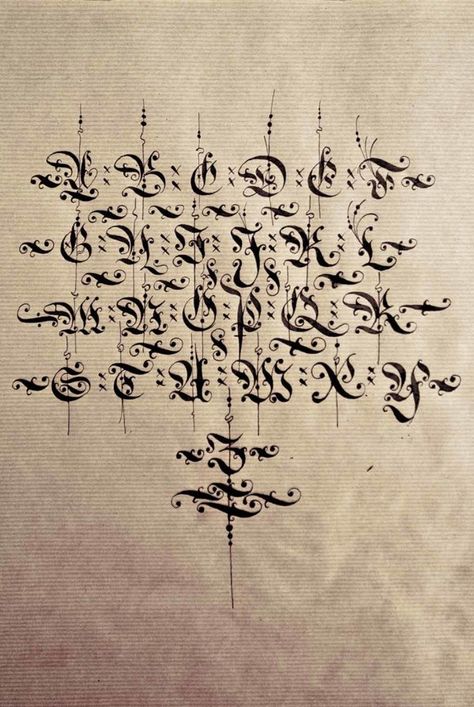 A : B : C : D : E : F
G : H : I : J : K : L
M : N : O : P : Q : R
S : T : U : W : X : Y
Z